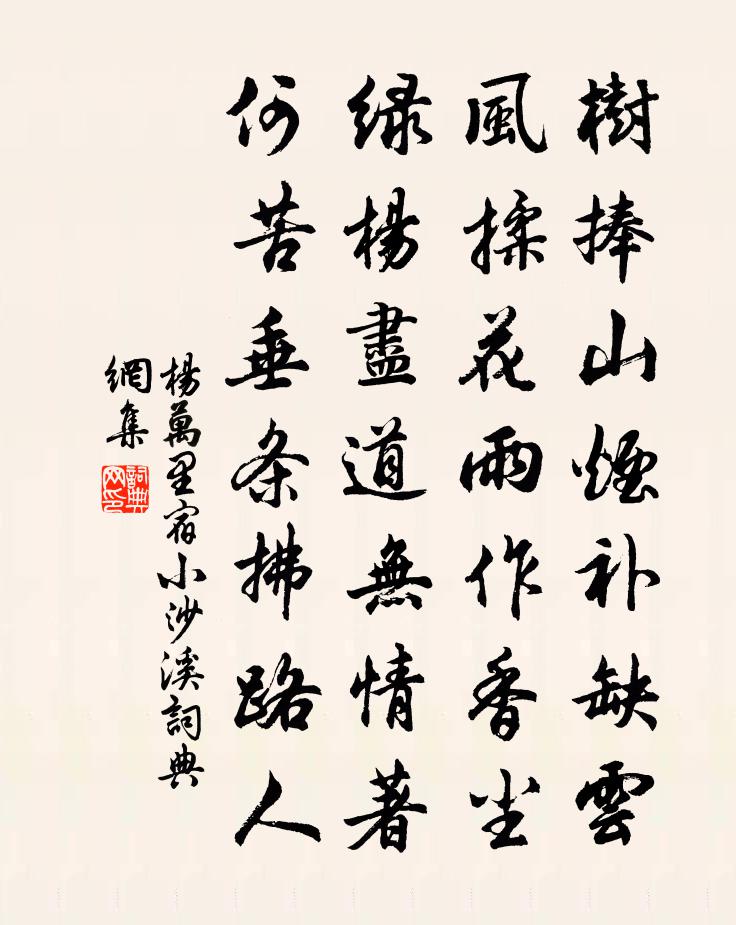 樹捧山煙补缺雲
風揉花雨作香尘
绿楊盡道無情著
何苦垂条拂路人
楊萬里宿小沙溪詞典
網集
詞典
网印